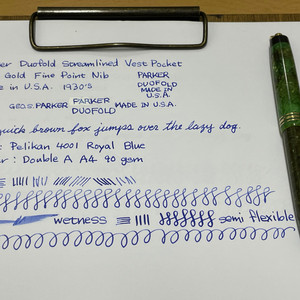 er Duofold Streamlined Vest Pocket
Gold Fine Point Nib
e in U.S.A. 1930's
PARKER
DUOFOLD
MADE IN
U.S.A.
GEO.S. PARKER PARKER DUOFOLD MADE IN U.S.A.
quick brown fox jumps over the lazy dog.
: Pelikan 4001 Royal Blue
r : Double A A4 90 gsm
wetness
semi flexible